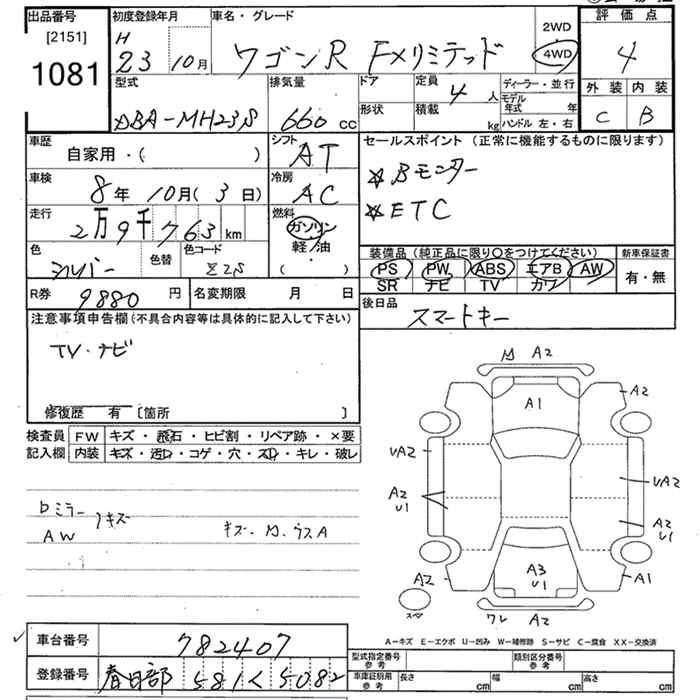 出品番号
[2151]
1081
初度登録年月
H
23 10月
車名・グレード
ワゴンR FXリミテッド
2WD
4WD
評価点
4
外装 内装
C B
型式
DBA-MH23S
排気量
660 cc
ドア
形状
定員
4 人
積載
kg
ディーラー・並行
モデル年式 年
ハンドル 左・右
車歴
自家用・( )
シフト
AT
車検
8年 10月(3日)
冷房
AC
走行
2万9千763 km
燃料
ガソリン
軽油
・
( )
色
シルバー
色替
色コード
Z2S
セールスポイント(正常に機能するものに限ります)
☆Bモニター
☆ETC
装備品(純正品に限り○をつけてください)
PS PW ABS エアB AW
SR ナビ TV カワ
新車保証書
有・無
R券
9880 円
名変期限 月 日
後日品
スマートキー
注意事項申告欄(不具合内容等は具体的に記入して下さい)
TV・ナビ
修復歴 有 [箇所 ]
検査員
記入欄
FW キズ・飛石・ヒビ割・リペア跡・×要
内装 キズ・汚れ・コゲ・穴・スレ・キレ・破レ
bミラー
AW
キズ
キズ・M・ウスA
M A2
A1
A2
A2
UA2
UA2
A2
U1
A2
U1
A2
A3
U1
A1
スペア
ワレ A2
A-キズ E-エクボ U-凹み W-補修跡 S-サビ C-腐食 XX-交換済
車台番号
782407
登録番号
春日部 581く5082
型式指定番号
参考
類別区分番号
参考
車庫証明用
参考
長さ cm
幅 cm
高さ cm